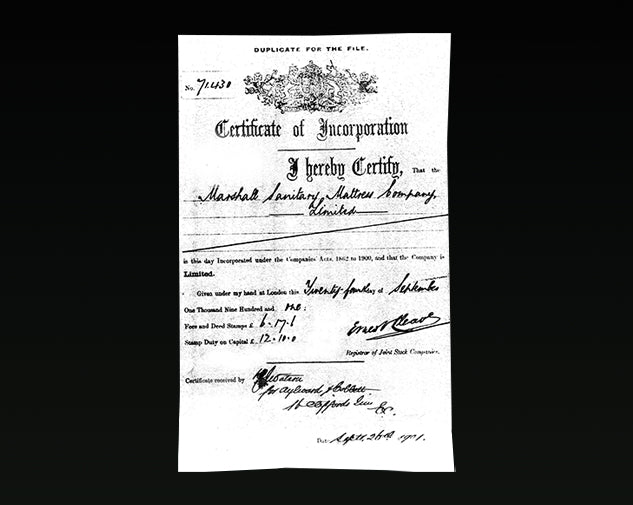 DUPLICATE FOR THE FILE.
No. 71430
Certificate of Incorporation
I hereby Certify, That the
Marshall Sanitary Mattress Company,
Limited
is this day Incorporated under the Companies' Acts, 1862 to 1900, and that the Company is
Limited.
Given under my hand at London this Twenty-fourth day of September
One Thousand Nine Hundred and one:
Fees and Deed Stamps £ 6.17.6
Stamp Duty on Capital £ 12.10.0
Ernest Cleave
Registrar of Joint Stock Companies.
Certificate received by Watson
for Aylward &
Inn
&c.
Date Sept. 26th 1901.